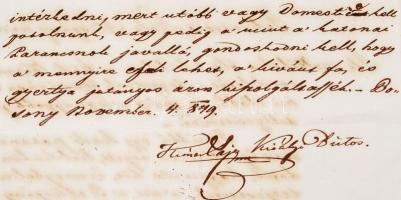 intézkedni, mert utóbb vagy Domest kell
gotolnunk, vagy pedig a mint a katonai
Parancsnok javallá, gondoskodni kell, hogy
a mennyire csak lehet, a kívánt fa, és
gyertya jutányos áron kipolgáltassék. – Bo-
sony November. 4. 849.
Király Biztos.